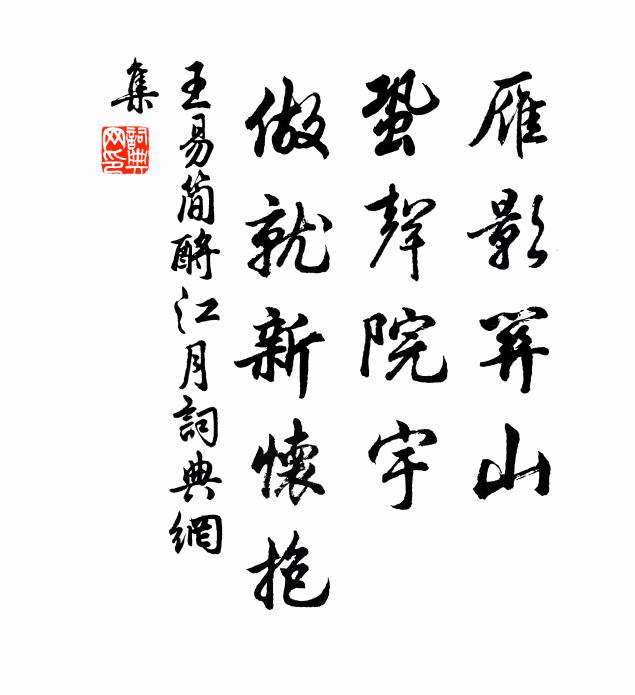 雁影關山
蛩聲院宇
做就新懷抱
王易簡酹江月詞典網
集
詞典
网印